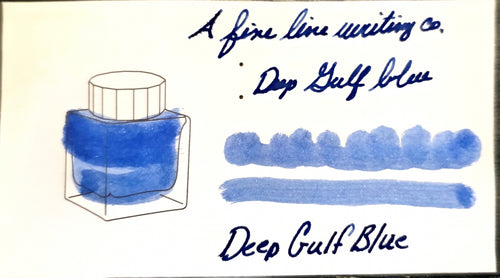 A fine line writing co.
: Deep Gulf blue
Deep Gulf Blue